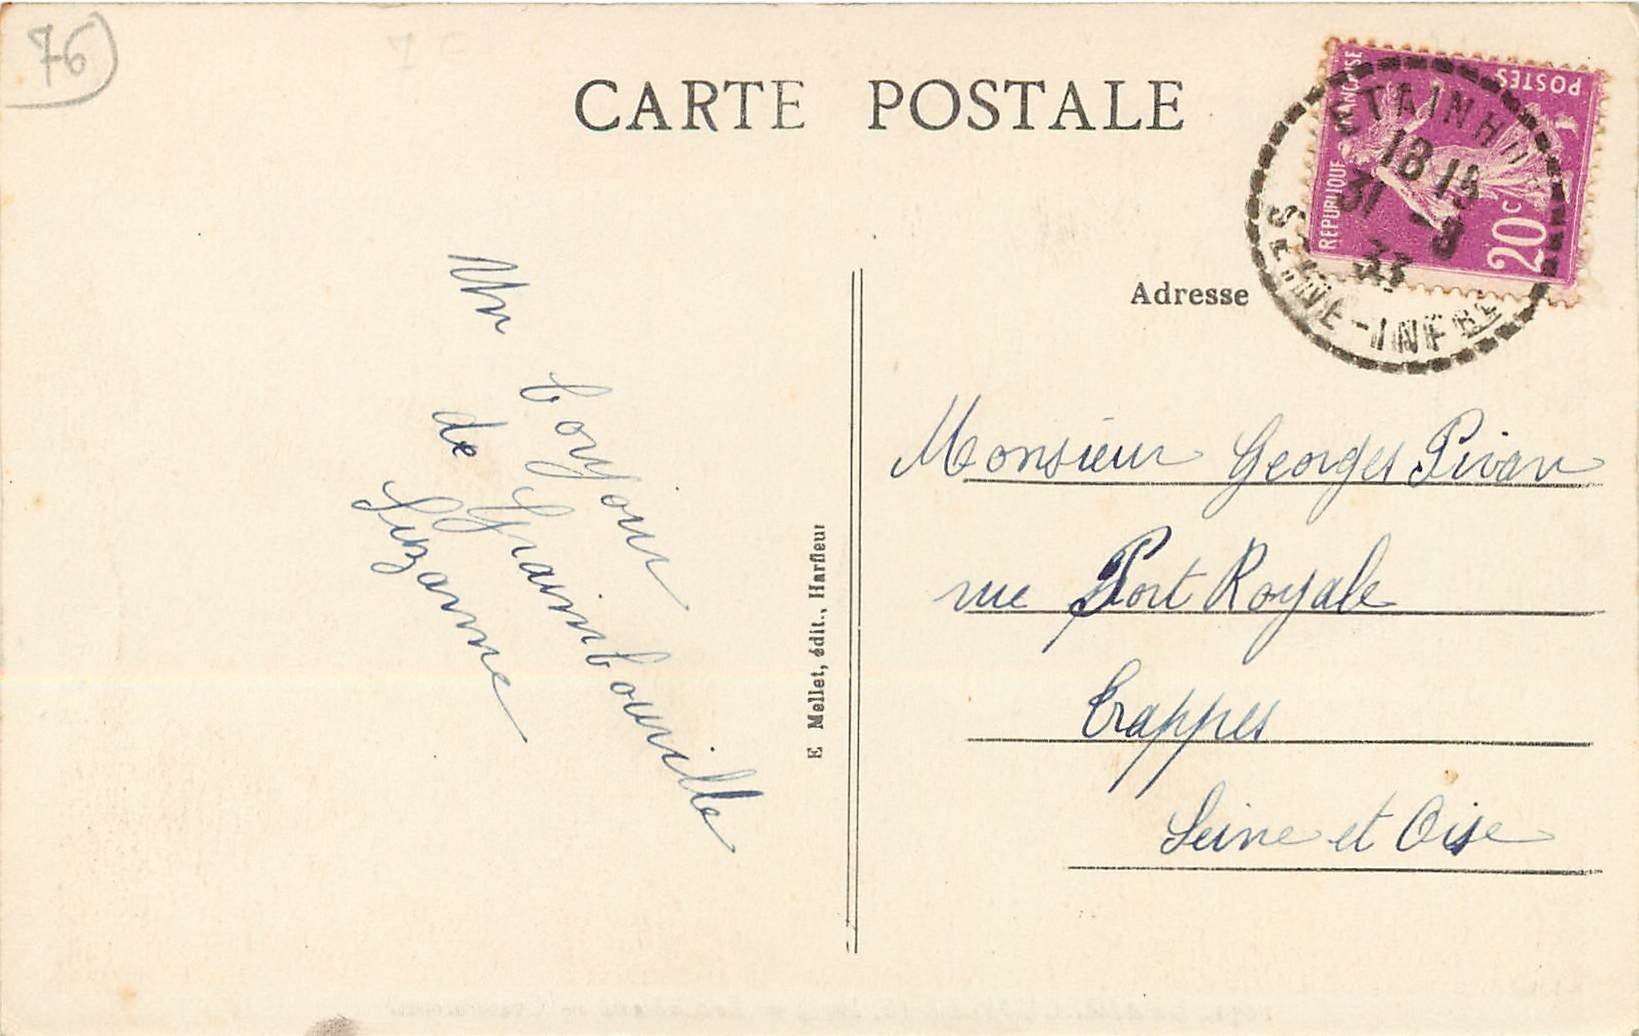 76
CARTE POSTALE
REPUBLIQUE FRANÇAISE
POSTES
20c
ETAINHUS
18 15
31 -8
33
SEINE-INFRE
Adresse
Un
bonjour
de
Graimbouville
Suzanne
E. Mellet, édit., Harfleur
Monsieur Georges Pivan
rue Port Royale
Trappes
Seine et Oise